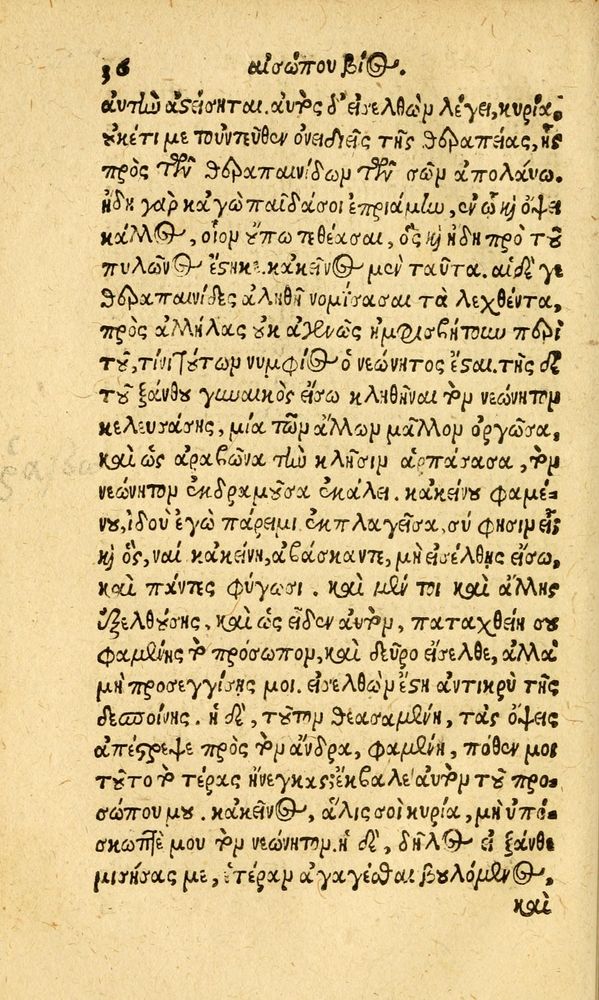 36 αἰσώπου βίος.
ἀυτὴν ἀστείσηται. ἀυτὸς δ' εἰσελθὼν λέγει, κυρία,
ὀυκέτι με τουντεῦθεν ὀνειδιεῖς τῆς θεραπείας, ἧς
πρὸς τῶν θεραπαινίδων τῶν σῶν ἀπολάυω.
ἤδη γὰρ κἀγὼ παῖδά σοι ἐπριάμην, ἐν ᾧ καὶ ὄψει
κάλλος, οἷον ὄυπω τεθέασαι, ὃς καὶ ἤδη πρὸ τοῦ
πυλῶνος ἕστηκε. κἀκεῖνος μὲν ταῦτα. αἱ δέ γε
θεραπαινίδες ἀληθῆ νομίσασαι τὰ λεχθέντα,
πρὸς ἀλλήλας ὀυκ ἀγενῶς ἠμφισβήτουν περὶ
τοῦ, τίνι τούτων νυμφίος ὁ νεώνητος ἔσται. τῆς δὲ
τοῦ ξάνθου γυναικὸς εἴσω κληθῆναι τὸν νεώνητον
κελευσάσης, μία τῶν ἄλλων μᾶλλον ὀργῶσα,
καὶ ὡς ἀραβῶνα τὴν κλῆσιν ἁρπάσασα, τὸν
νεώνητον ἐκδραμοῦσα ἐκάλει. κἀκείνου φαμέ-
νου, ἰδοὺ ἐγὼ πάρειμι, ἐκπλαγεῖσα, σύ φησιν εἶ;
καὶ ὃς, ναί. κἀκείνη, ἀβάσκαντε, μὴ εἰσέλθῃς εἴσω,
καὶ πάντες φύγωσι. καὶ μέν τοι καὶ ἄλλης
ἐξελθούσης, καὶ ὡς εἶδεν ἀυτὸν, παταχθείη σου
φαμένης τὸ πρόσωπον, καὶ δεῦρο εἴσελθε, ἀλλὰ
μὴ προσεγγίσῃς μοι. εἰσελθὼν ἔστη ἀντικρὺ τῆς
δεσποίνης. ἡ δὲ, τοῦτον θεασαμένη, τὰς ὄψεις
ἀπέστρεψε πρὸς τὸν ἄνδρα, φαμένη, πόθεν μοι
τοῦτο τὸ τέρας ἤνεγκας; ἔκβαλε ἀυτὸν τοῦ προ-
σώπου μου. κἀκεῖνος, ἅλις σοὶ κυρία, μὴ ὑπό-
σκωπτέ μου τὸν νεώνητον. ἡ δὲ, δῆλος εἶ ξάνθε
μισήσας με, ἑτέραν ἀγαγέσθαι βουλόμενος,
καὶ